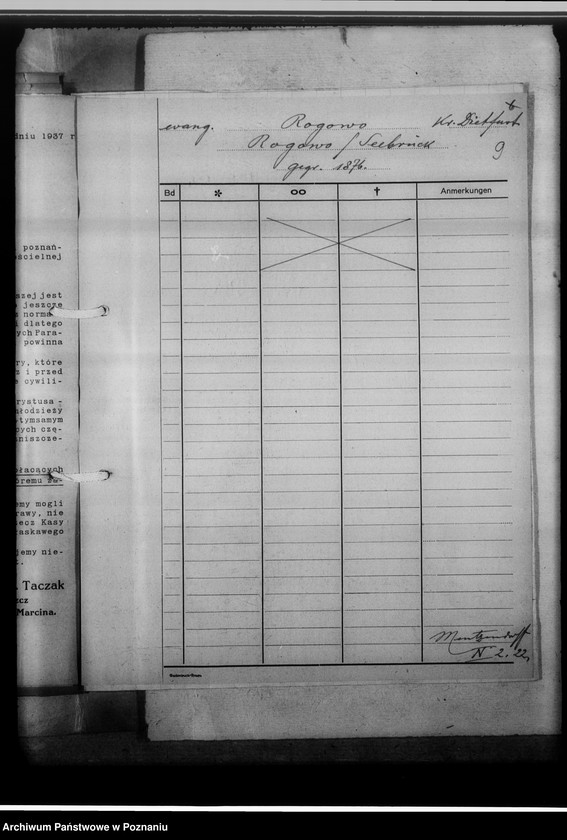 dniu 1937 r
poznań-
ościelnej
szej jest
jeszcze
norma
i dlatego
ych Para-
powinna
ry, które
z i przed
cywili-
rystusa -
młodzieży
tymsamym
ych czę-
niszcze-
płacących
óremu za-
emy mogli
rawy, nie
iecz Kasy
łaskawego
jemy nie-
. Taczak
cz
Marcina.
evang. Rogowo Kr. Dietfurt 6
Rogowo / Seebrück 9
gegr. 1876.
Bd * oo † Anmerkungen
N 2. 22,
Archiwum Państwowe w Poznaniu